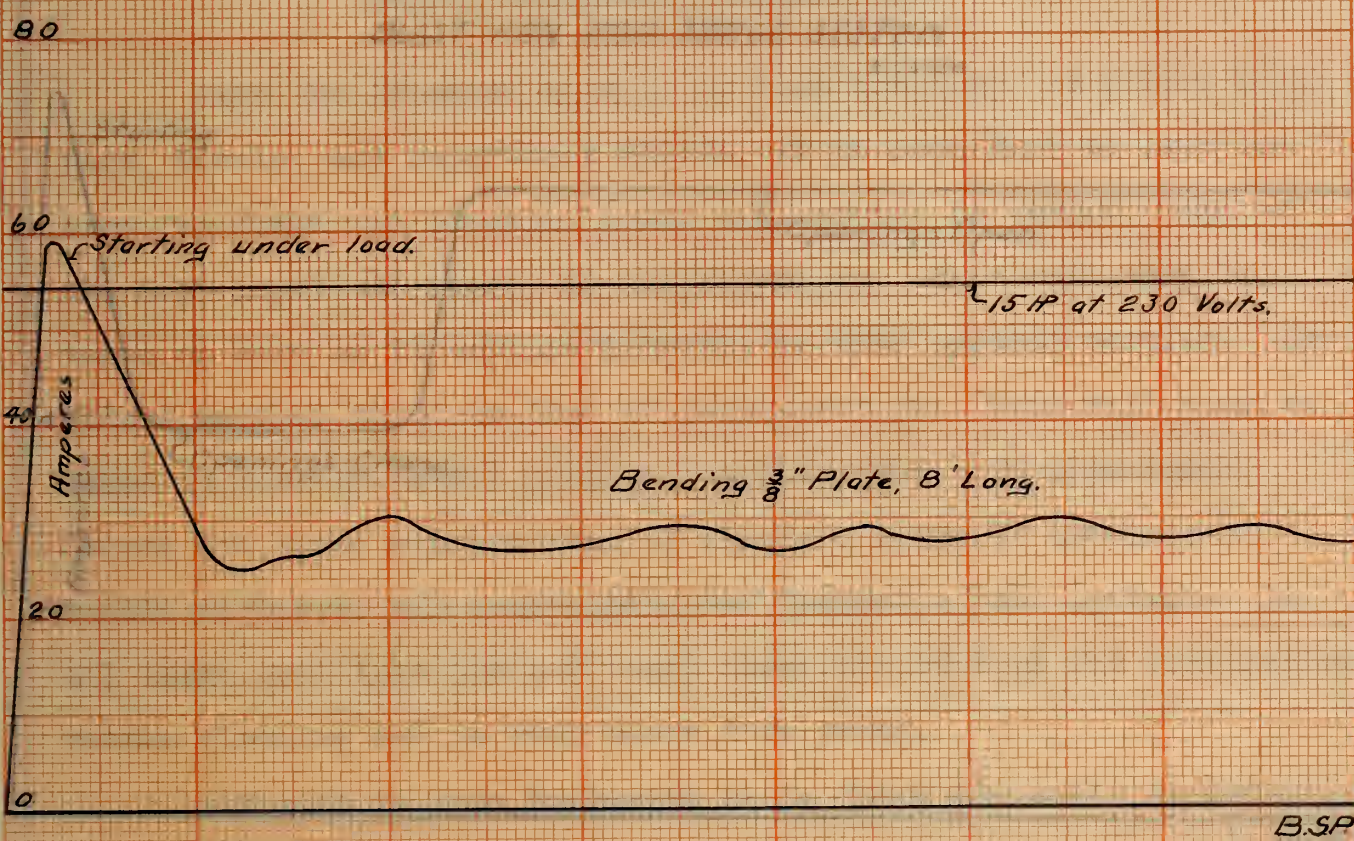 80
60
Starting under load.
15 HP at 230 Volts.
40
Amperes
Bending 3/8" Plate, 8' Long.
20
0
B.S.P.